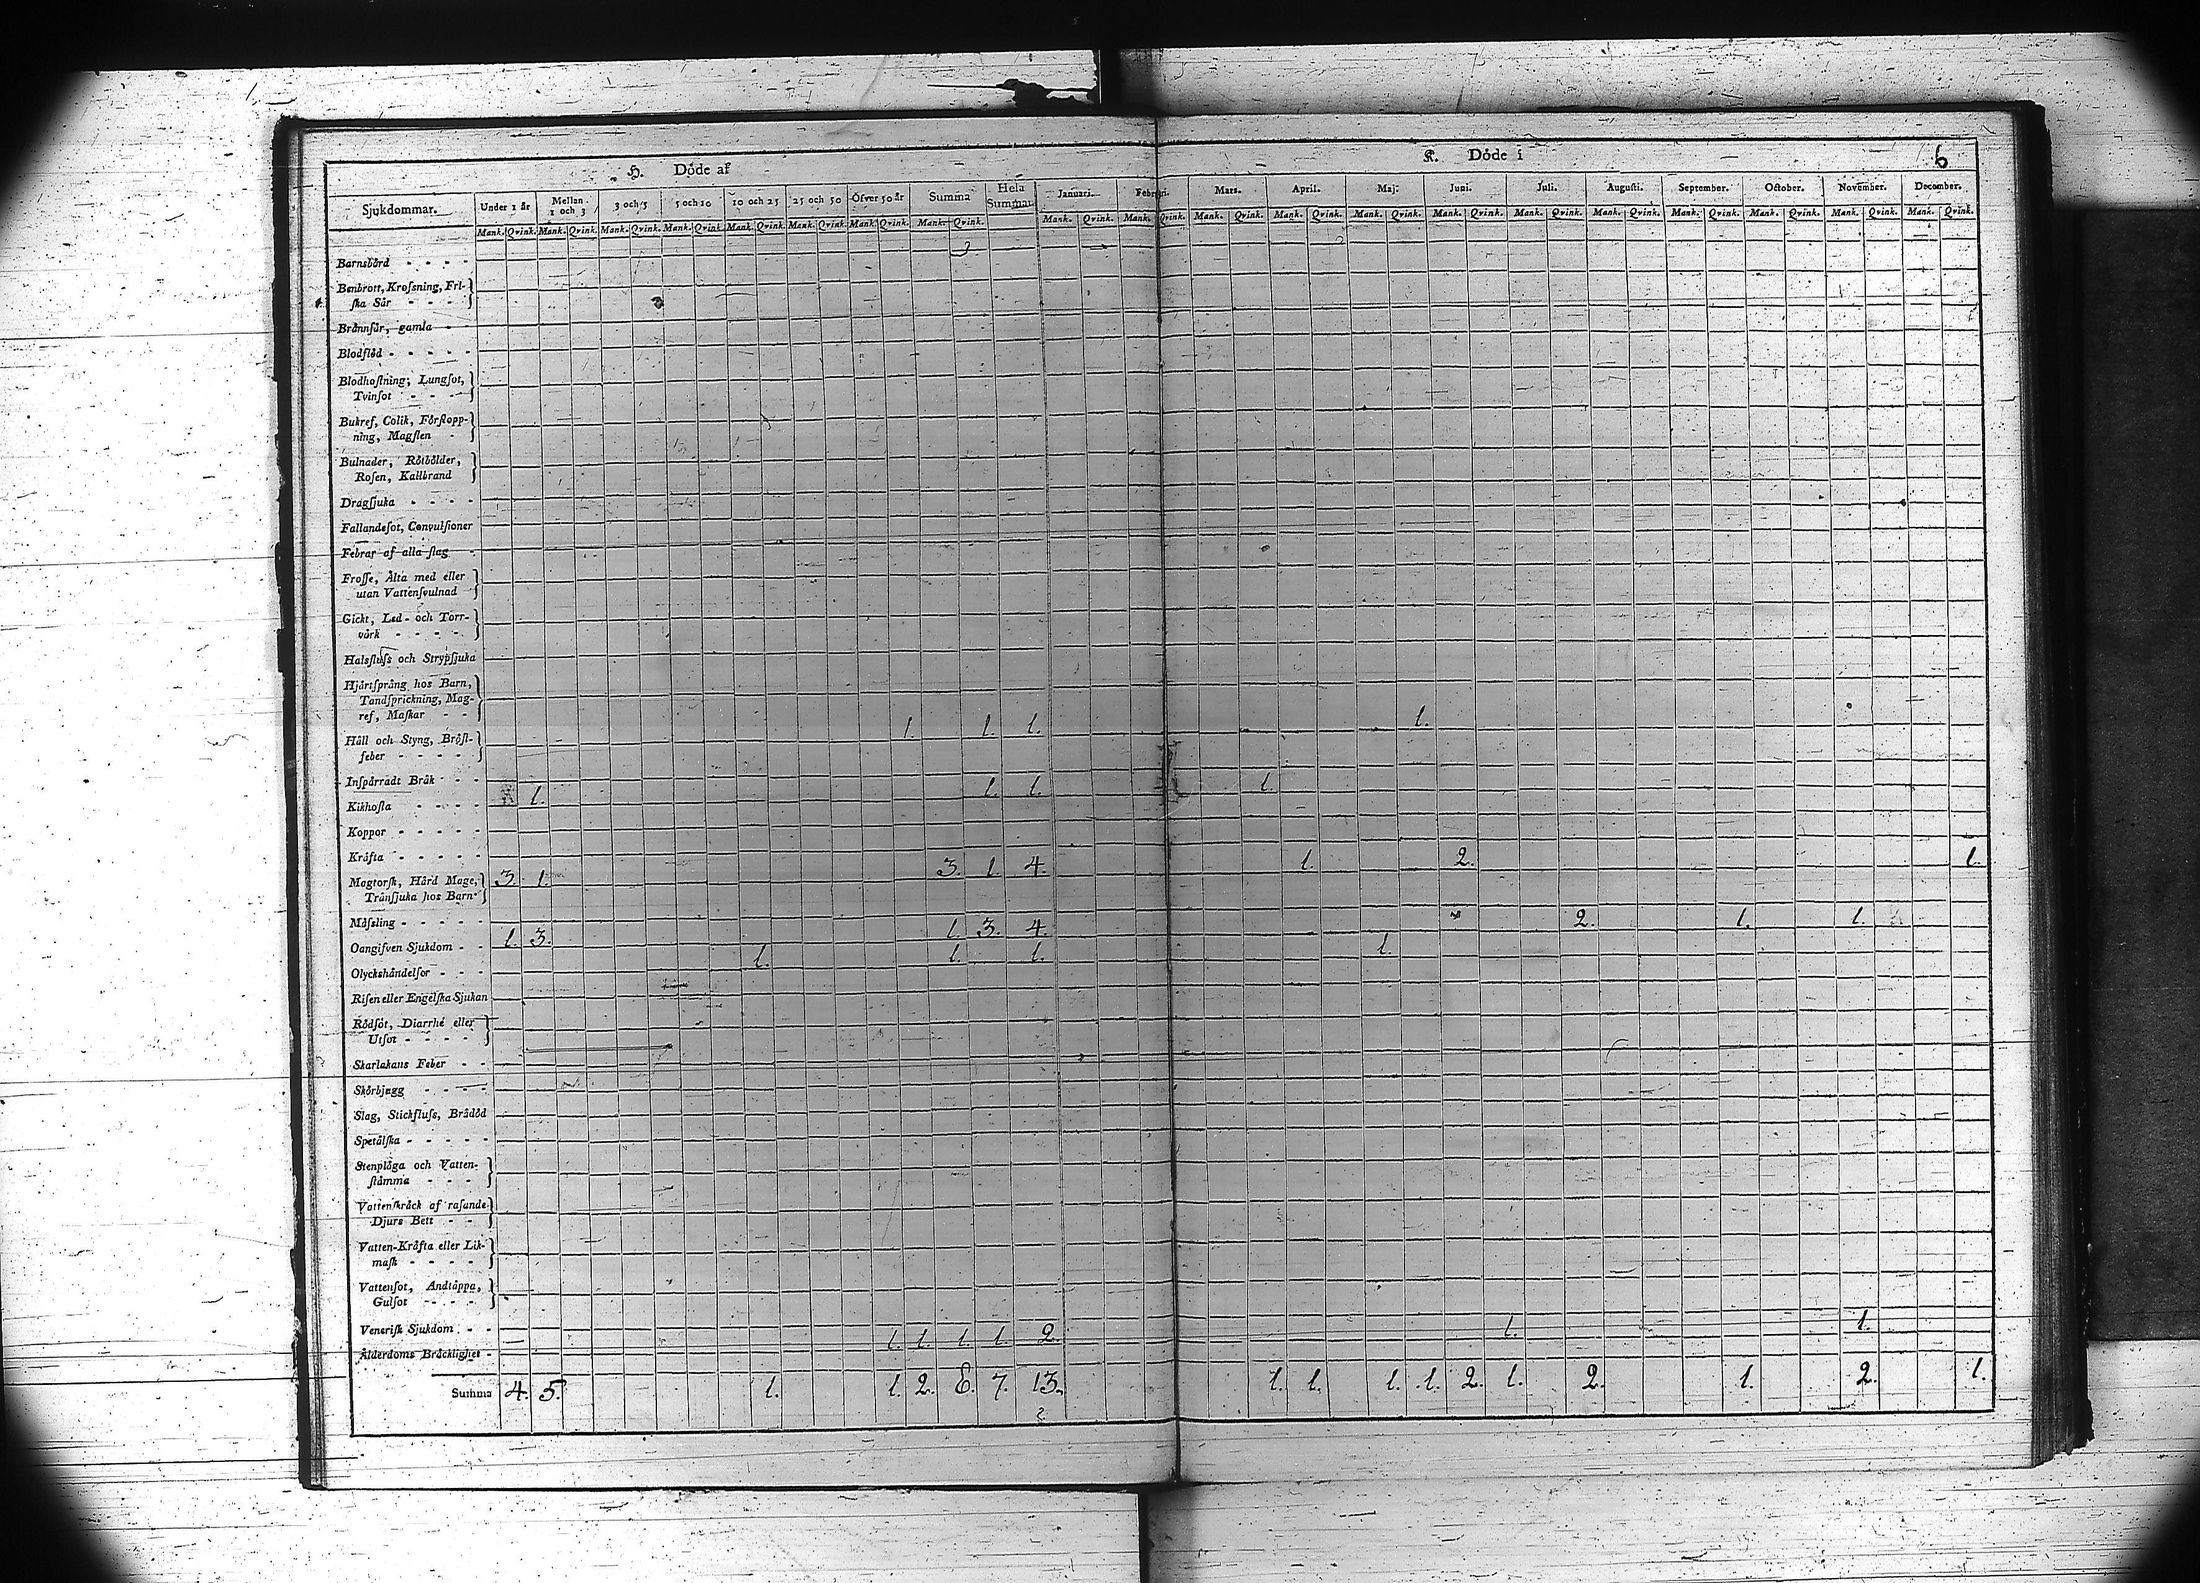 H. Döde af
K. Döde i
6
Sjukdommar. Under 1 år Mellan 1 och 3 3 och 5 5 och 10 10 och 25 25 och 50 Öfver 50 år Summa Hela Summan Januari. Februari. Mars. April. Maj. Juni. Juli. Augusti. September. October. November. December.
Mank. Qvink. Mank. Qvink. Mank. Qvink. Mank. Qvink. Mank. Qvink. Mank. Qvink. Mank. Qvink. Mank. Qvink. Mank. Qvink. Mank. Qvink. Mank. Qvink. Mank. Qvink. Mank. Qvink. Mank. Qvink. Mank. Qvink. Mank. Qvink. Mank. Qvink. Mank. Qvink. Mank. Qvink. Mank. Qvink.
Barnsbörd - - - -
Benbrott, Krossning, Fri-
ska Sår - - -
Brännsår, gamla - -
Blodflöd - - - - -
Blodhostning, Lungsot,
Tvinsot - - -
Bukref, Colik, Förstopp-
ning, Magsten -
Bulnader, Rötbölder,
Rosen, Kallbrand
Dragsjuka - - - -
Fallandesot, Convulsioner
Febrar af alla slag -
Frosse, Älta med eller
utan Vattensvulnad
Gickt, Led- och Torr-
värk - - - -
Halsfluss och Strypsjuka
Hjärtsprång hos Barn,
Tandsprickning, Mag-
ref, Maskar - -
1. 1. 1. 1.
Håll och Styng, Bröst-
feber - - - -
Inspärradt Bråk - - -
1. 1. 1. 1.
Kikhosta - - - -
Koppor - - - - -
Kräfta - - - - -
3. 1. 3. 1. 4. 1. 2. 1.
Magtorsk, Hård Mage,
Tränsjuka hos Barn
Mässling - - - - -
1. 3. 1. 3. 4. 2. 1. 1.
Oangifven Sjukdom - -
1. 1. 1. 1.
Olyckshändelser - - -
Risen eller Engelska Sjukan
Rödsot, Diarrhé eller
Utsot - - - -
Skarlakans Feber - -
Skörbjugg - - - -
Slag, Stickfluss, Brådöd
Spetälska - - - - -
Stenplåga och Vatten-
stämma - - -
Vattenskräck af rasande
Djurs Bett - -
Vatten-Kräfta eller Lik-
mask - - - -
Vattensot, Andtäppa,
Gulsot - - -
Venerisk Sjukdom - -
1. 1. 1. 1. 2. 1. 1.
Ålderdoms Bräcklighet -
Summa 4. 5. 1. 1. 2. 6. 7. 13. 1. 1. 1. 1. 2. 1. 2. 1. 2. 1.